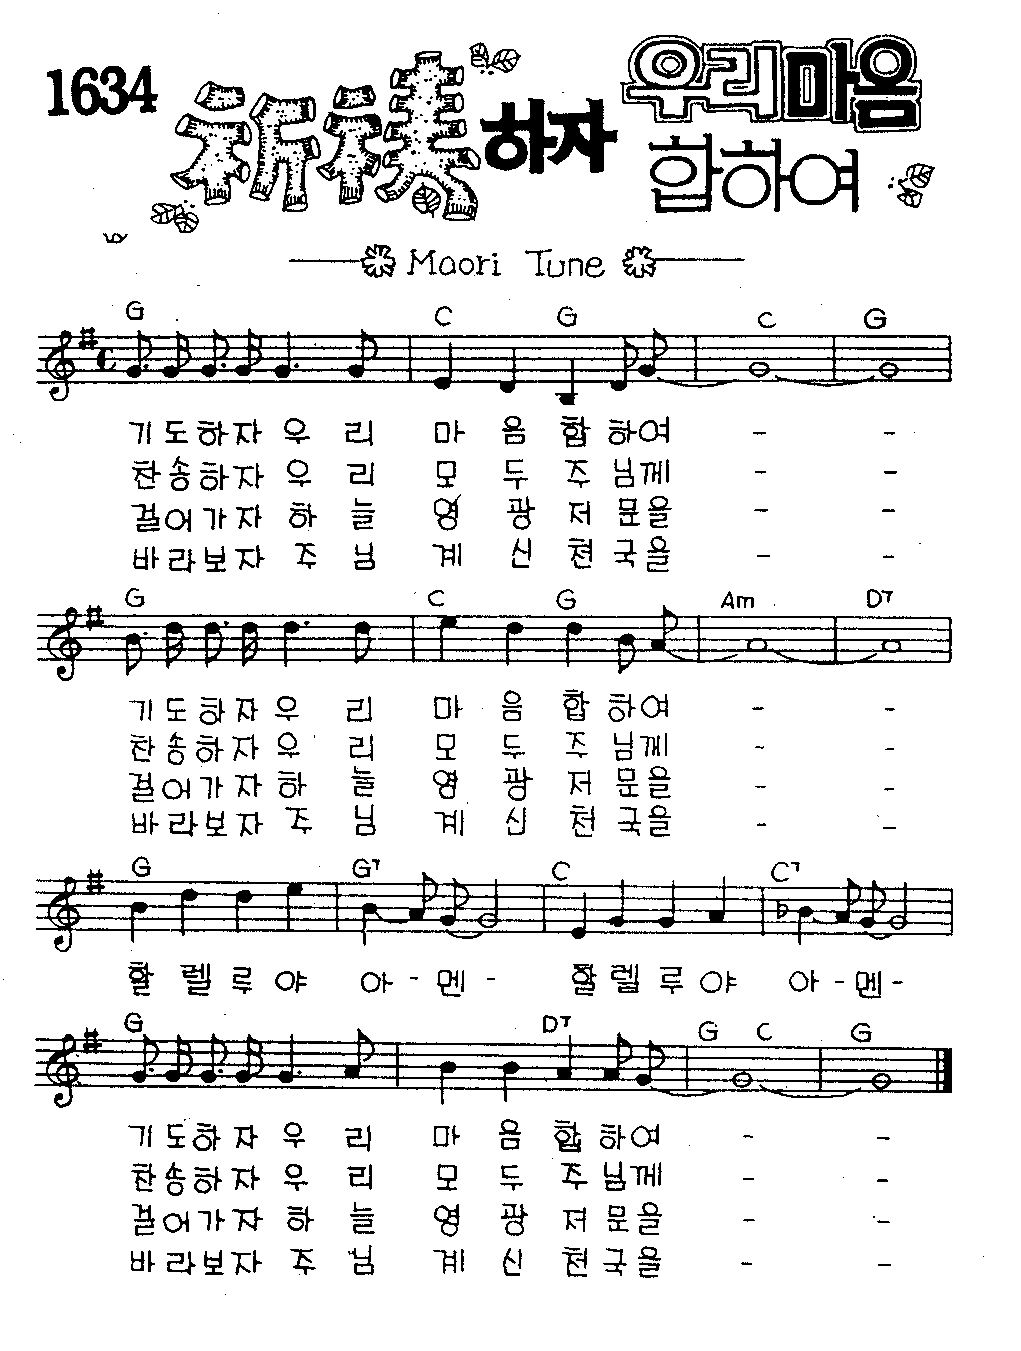 1634 祈禱하자 우리마음
합하여
Maori Tune
G C G C G
기도하자 우 리 마 음 합 하여 - -
찬송하자 우 리 모 두 주 님께 - -
걸어가자 하 늘 영 광 저 문을 - -
바라보자 주 님 계 신 천 국을 - -
G C G Am D7
기도하자 우 리 마 음 합 하여 - -
찬송하자 우 리 모 두 주 님께 - -
걸어가자 하 늘 영 광 저 문을 - -
바라보자 주 님 계 신 천 국을 - -
G G7 C C7
할 렐 루 야 아 - 멘 - 할 렐 루 야 아 - 멘 -
G D7 G C G
기도하자 우 리 마 음 합 하여 - -
찬송하자 우 리 모 두 주 님께 - -
걸어가자 하 늘 영 광 저 문을 - -
바라보자 주 님 계 신 천 국을 - -